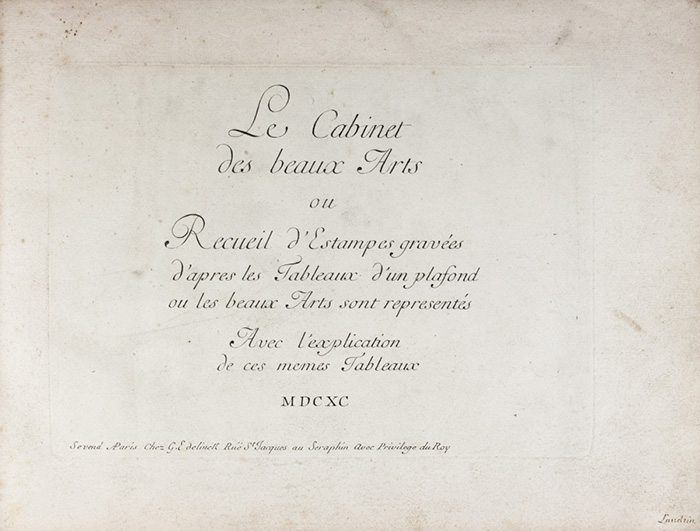 Le Cabinet
des beaux Arts
ou
Recueil d'Estampes gravées
d'apres les Tableaux d'un plafond
ou les beaux Arts sont representés
Avec l'explication
de ces memes Tableaux
MDCXC
Se vend AParis Chez G. Edelinck Ruë St. Jacques au Seraphin Avec Privilege du Roy